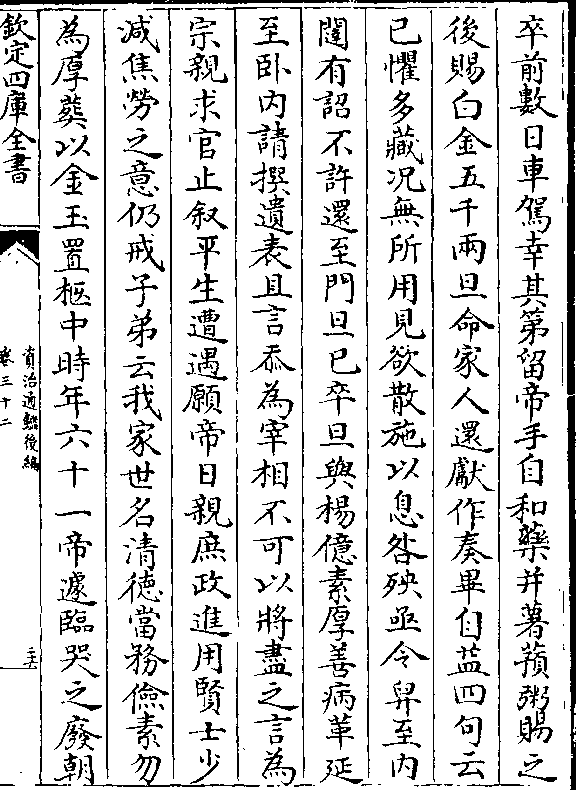 卒前數日車駕幸其第留帝手自和藥并薯蕷粥賜之
後賜白金五千兩旦命家人還獻作奏畢自益四句云
已懼多藏况無所用見欲散施以息咎殃亟令舁至内
闥有詔不許還至門旦已卒旦與楊億素厚善病革延
至卧内請撰遺表且言忝為宰相不可以將盡之言為
宗親求官止叙平生遭遇願帝日親庶政進用賢士少
减焦勞之意仍戒子弟云我家世名清徳當務儉素勿
為厚葬以金玉置柩中時年六十一帝遽臨哭之廢朝
欽定四庫全書
資治通鑑後編
卷三十二